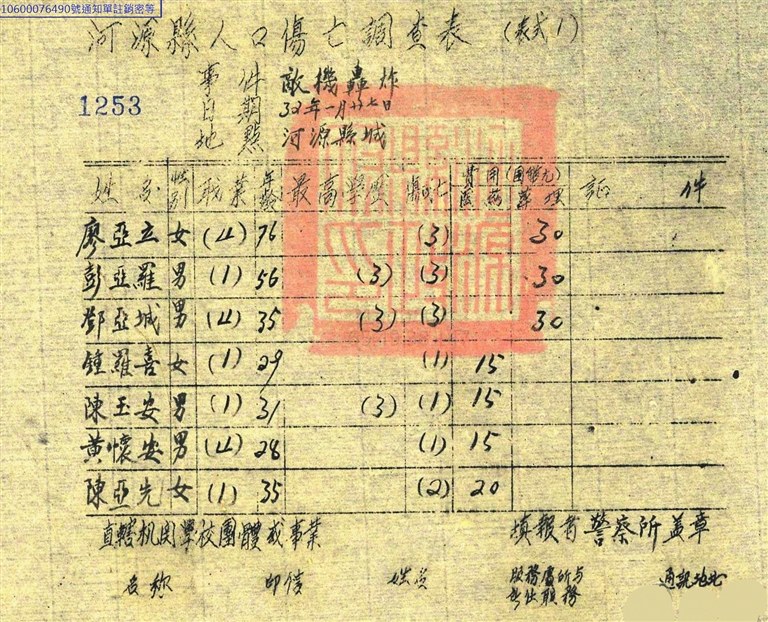 10600076490號通知單註銷密等
河源縣人口傷亡調查表 (表式1)
1253
事件 敵機轟炸
日期 32年一月廿七日
地點 河源縣城
姓名 性別 職業 年齡 最高學歷 傷或亡 費用(國幣元) 醫藥 葬埋 証件
廖亞立 女 (4) 76 (3) 30
彭亞羅 男 (1) 56 (3) (3) 30
鄧亞城 男 (4) 35 (3) (3) 30
鍾羅喜 女 (1) 29 (1) 15
陳玉安 男 (1) 31 (3) (1) 15
黃懷安 男 (4) 28 (1) 15
陳亞先 女 (1) 35 (2) 20
直轄机関學校團體或事業 填報者 警察所 盖章
名称 印信 姓名 服務處所与所任職務 通訊地址